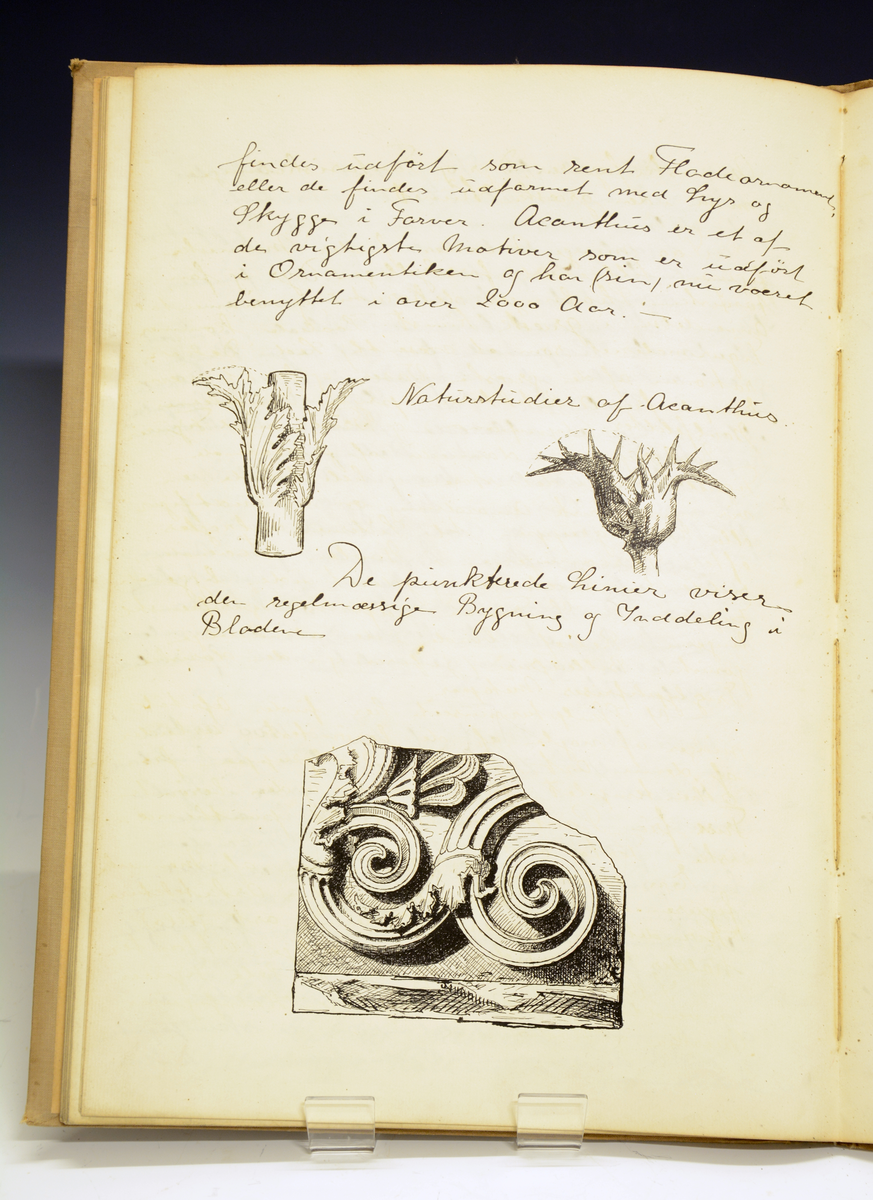 findes udført som rent Fladeornament,
eller de findes udformet med Lys og
Skygge i Farver. Acanthus er et af
de vigtigste Motiver som er udført
i Ornamentiken og har (sin) nu været
benyttet i over 2000 Aar. —
Naturstudier af Acanthus
De punkterede Linier viser
den regelmæssige Bygning og Inddeling i
Bladene